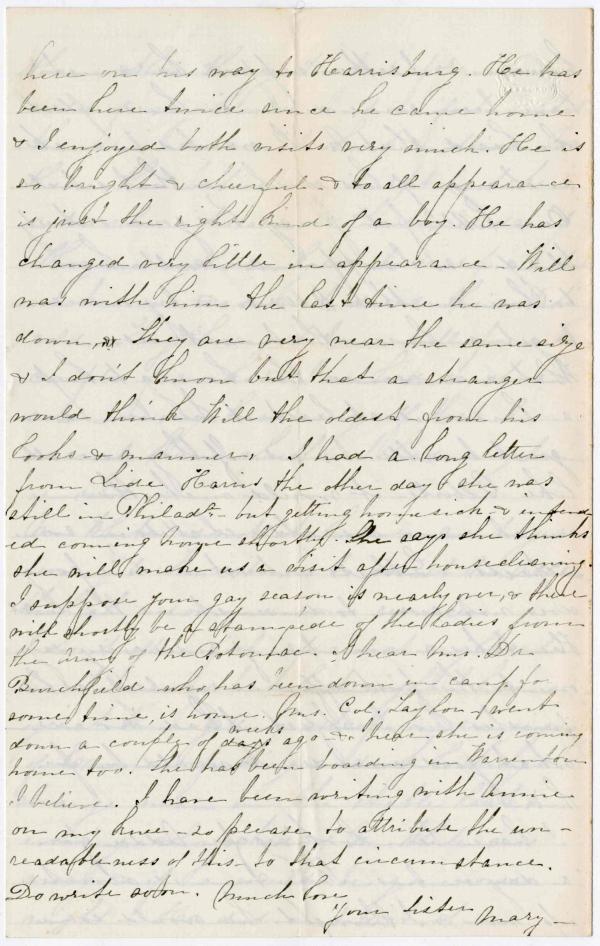 here on his way to Harrisburg. He has
been here twice since he came home
& I enjoyed both visits very much. He is
so bright & cheerful - & to all appearance
is just the right kind of a boy. He has
changed very little in appearance - Will
was with him the last time he was
down, They are very near the same size
& I don't know but that a stranger
would think Will the oldest - from his
looks & manner, I had a long letter
from Lide Harris the other day she was
still in Philada - but getting homesick & intend
ed coming home shortly. She says she thinks
she will make us a visit after housecleaning.
I suppose your gay season is nearly over, & there
will shortly be a stampede of the ladies from
the army of the Potomac. I hear Mrs. Dr.
Burchfield who, has been down in camp for
some time, is home. Mrs. Col. Taylor went
down a couple of days weeks ago & I hear she is coming
home too. She has been boarding in Warrenton
I believe. I have been writing with Annie
on my knee - so please to attribute the un-
readableness of this to that circumstance.
Do write soon. Much love
Your Sister Mary -